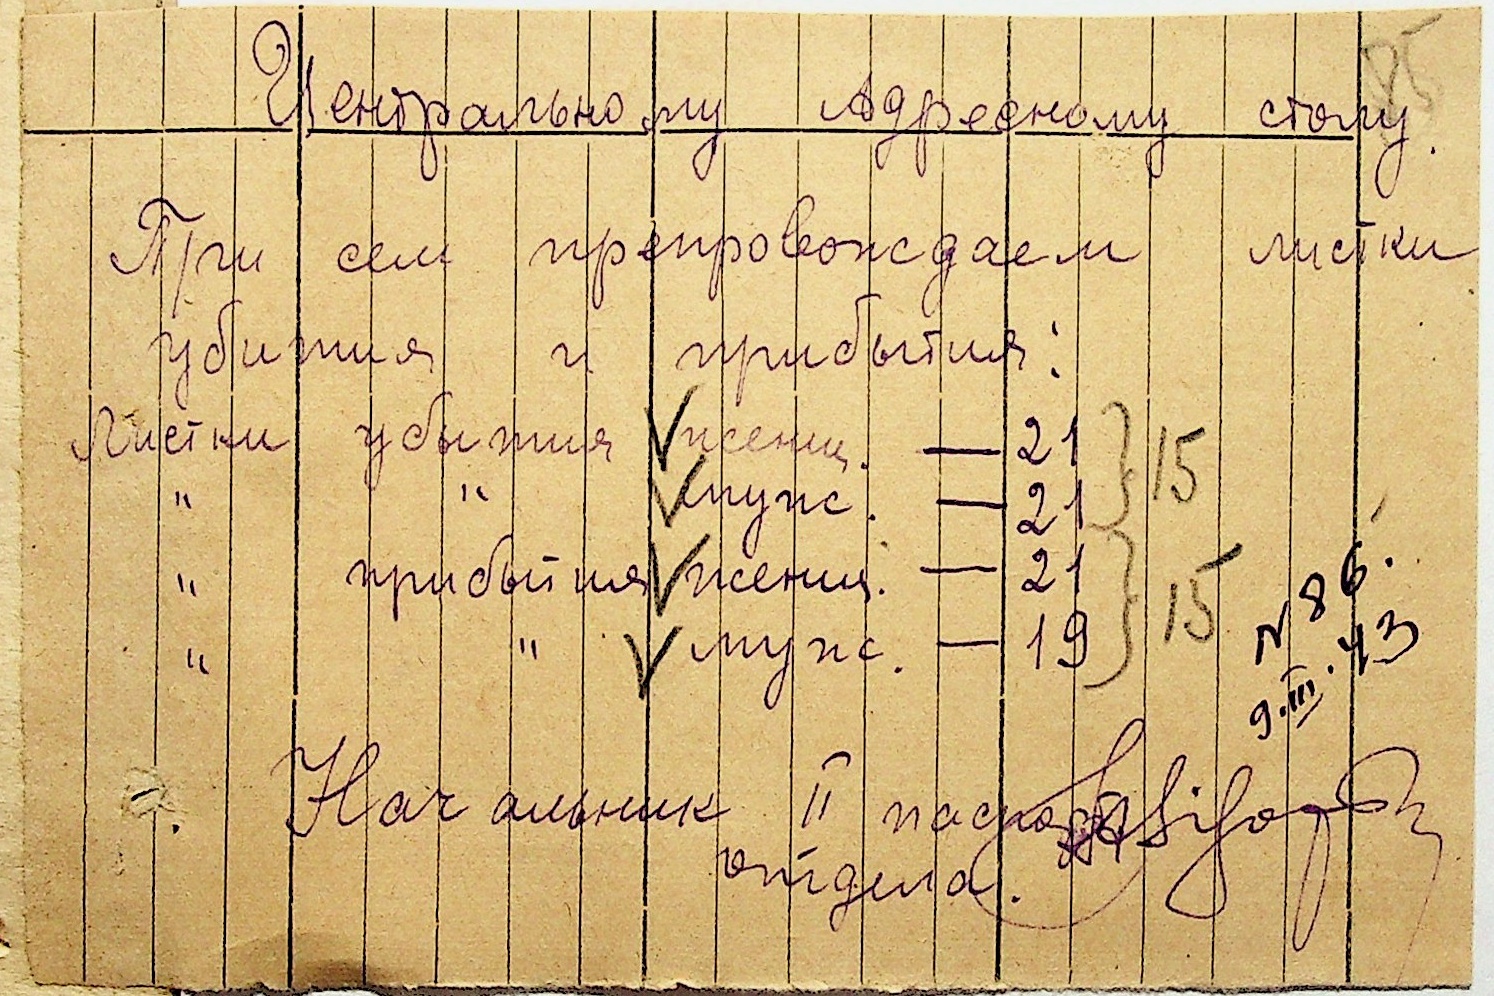 85
Центральному Адресному столу.
При сем препровождаем листки
убития и прибытия:
Листки убытия женщ. — 21
" " мужс. — 21
15
" прибытия женщ. — 21
" " мужс. — 19
15
N 86.
9.III.43
Начальник II паспорт
отдела.